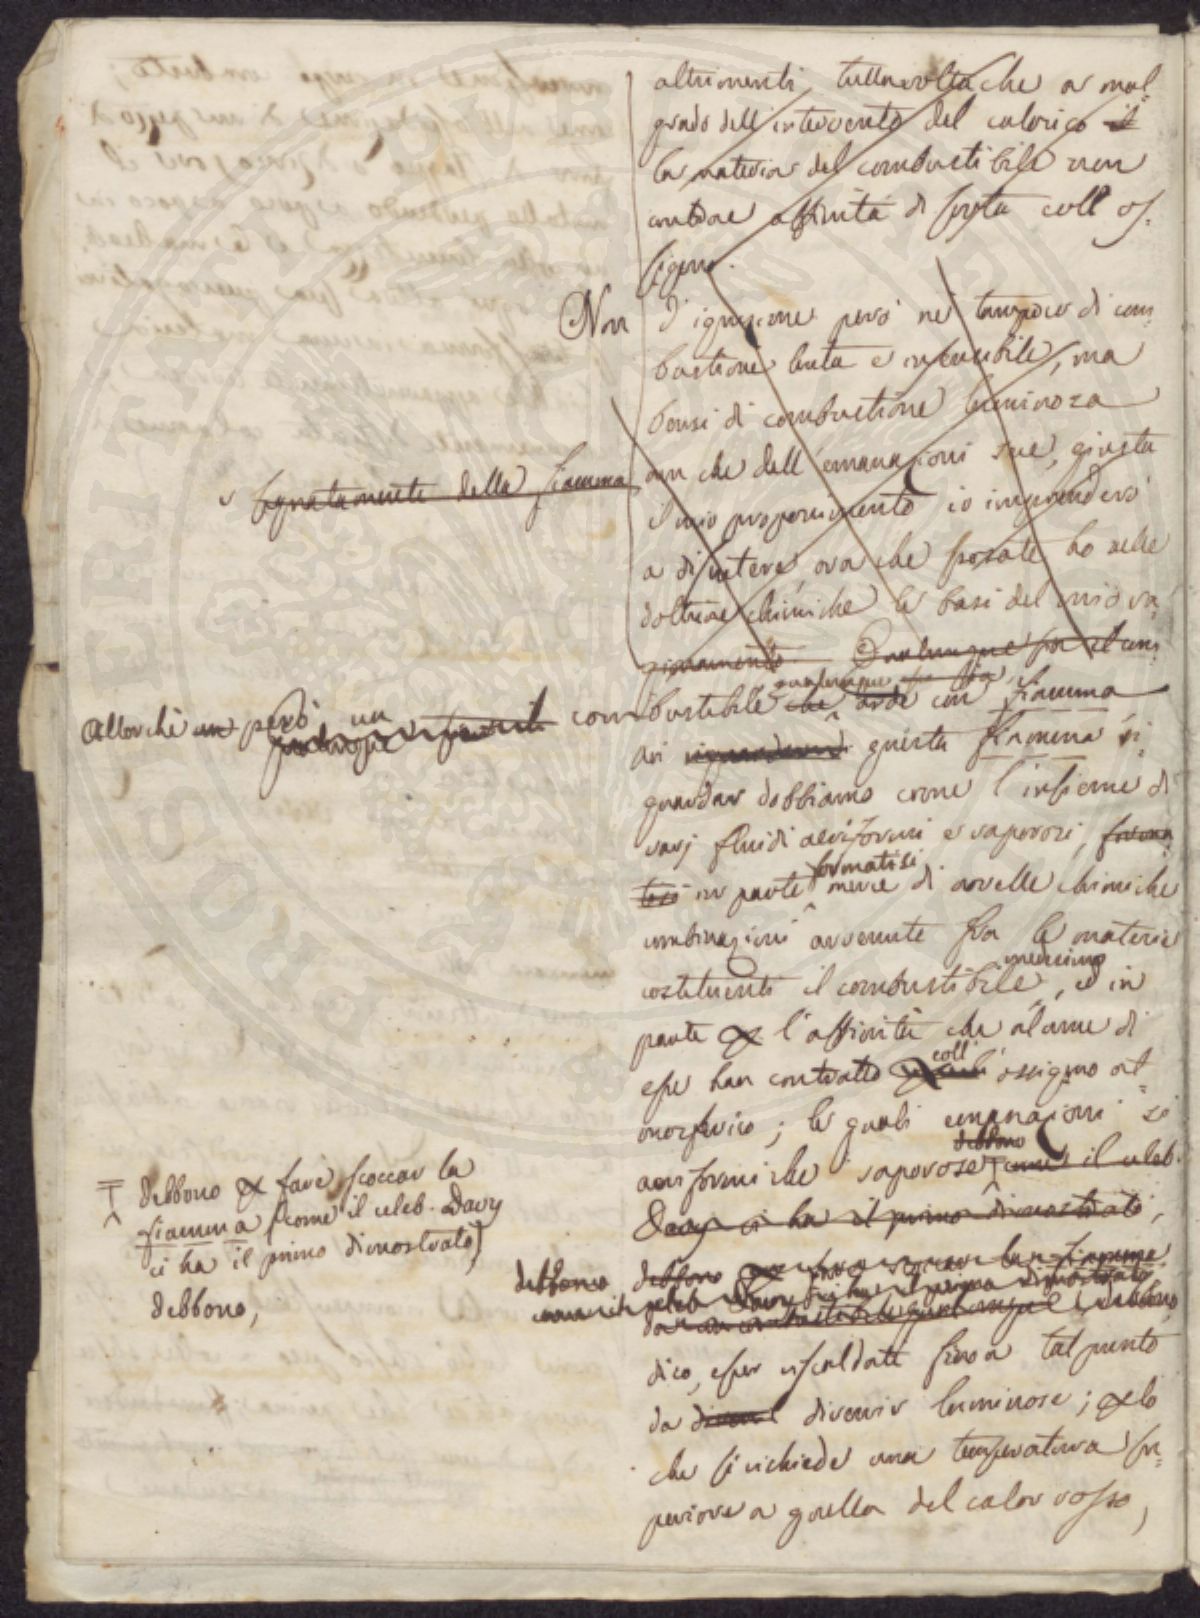 altrimenti, tuttavolta che a mal-
grado dell'intervento del calorico il
la materia del combustibile non
contrae affinità di sorta coll'os-
sigeno.
Non d'ignizione però nè tampoco di com-
bustione lenta e insensibile, ma
bensì di combustione luminosa
e segnatamente della fiamma
non che dell'emanazioni sue, giusta
il mio proponimento io imprenderò
a discutere ora che posate ho nelle
dottrine chimiche le basi del mio ra-
gionamento. Qualunque sia il com-
Allorchè un però un combustibile qualunque che arde con fiamma
noi questa fiamma ri-
guardar dobbiamo come l'insieme di
varj fluidi aeriformi e vaporosi, forma-
tesi in parte formatisi mercè di novelle chimiche
combinazioni avvenute fra le materie
costituenti il combustibile medesimo, ed in
parte per l'affinità che alcune di
esse han contratto coll'ossigeno at-
mosferico; le quali emanazioni sì
aeriformi che vaporose debbono come il celeb.
Davy ci ha il primo dimostrato,
debbono per fare scoccar la fiamma
come il celeb. Davy ci ha il primo dimostrato
da un combustibile qualunque, debbono,
╤ debbono per fare scoccar la
fiamma (come il celeb. Davy
ci ha il primo dimostrato)
debbono,
debbono
dico, esser riscaldate fino a tal punto
da divenir luminose; per lo
che si richiede una temperatura su-
periore a quella del calor rosso,